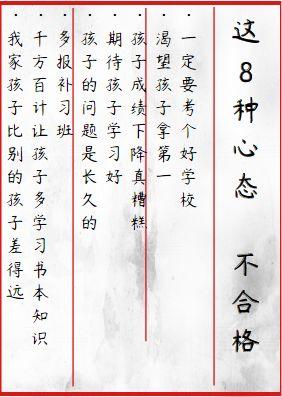 这8种心态 不合格
·一定要考个好学校
·渴望孩子拿第一
·孩子成绩下降真糟糕
·期待孩子学习好
·孩子的问题是长久的
·多报补习班
·千方百计让孩子多学习书本知识
·我家孩子比别的孩子差得远